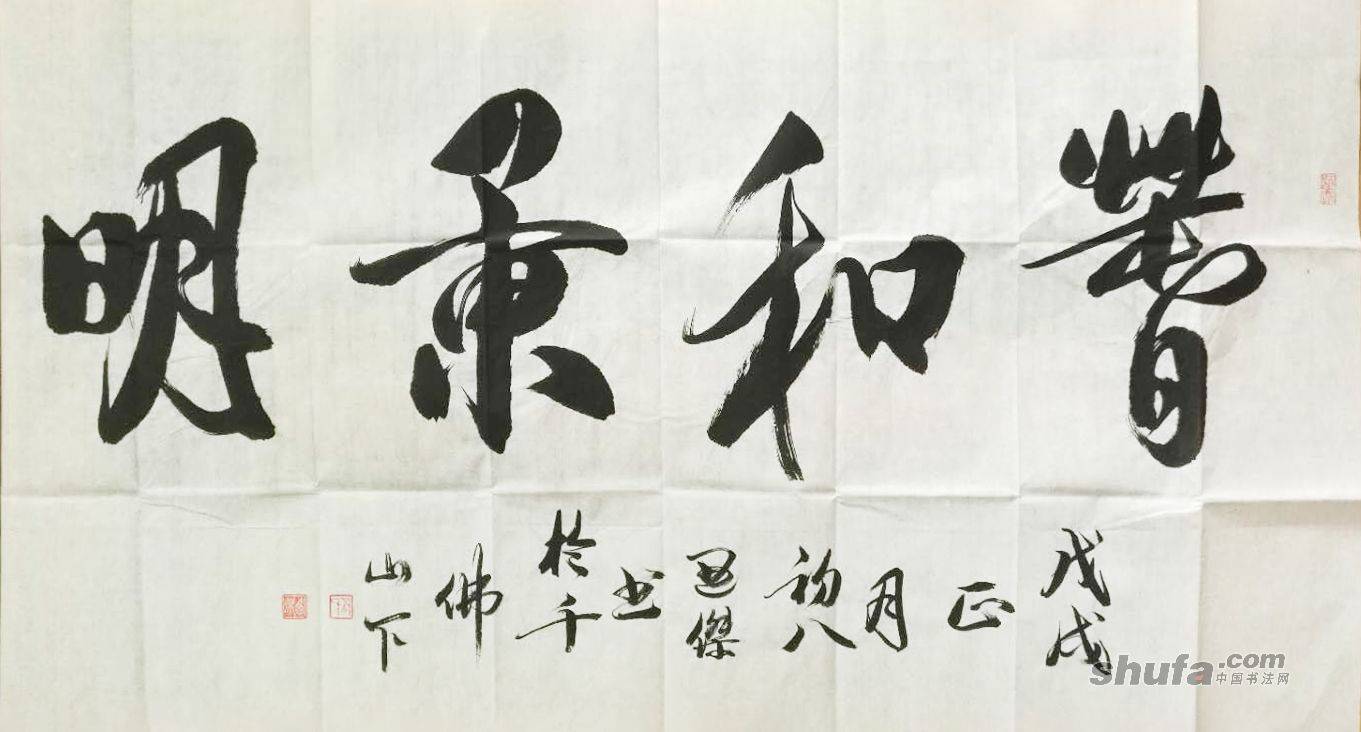 春和景明
戊戌
正
月
初八
傑
书
於千
佛
山下
shufa.com
中国书法网